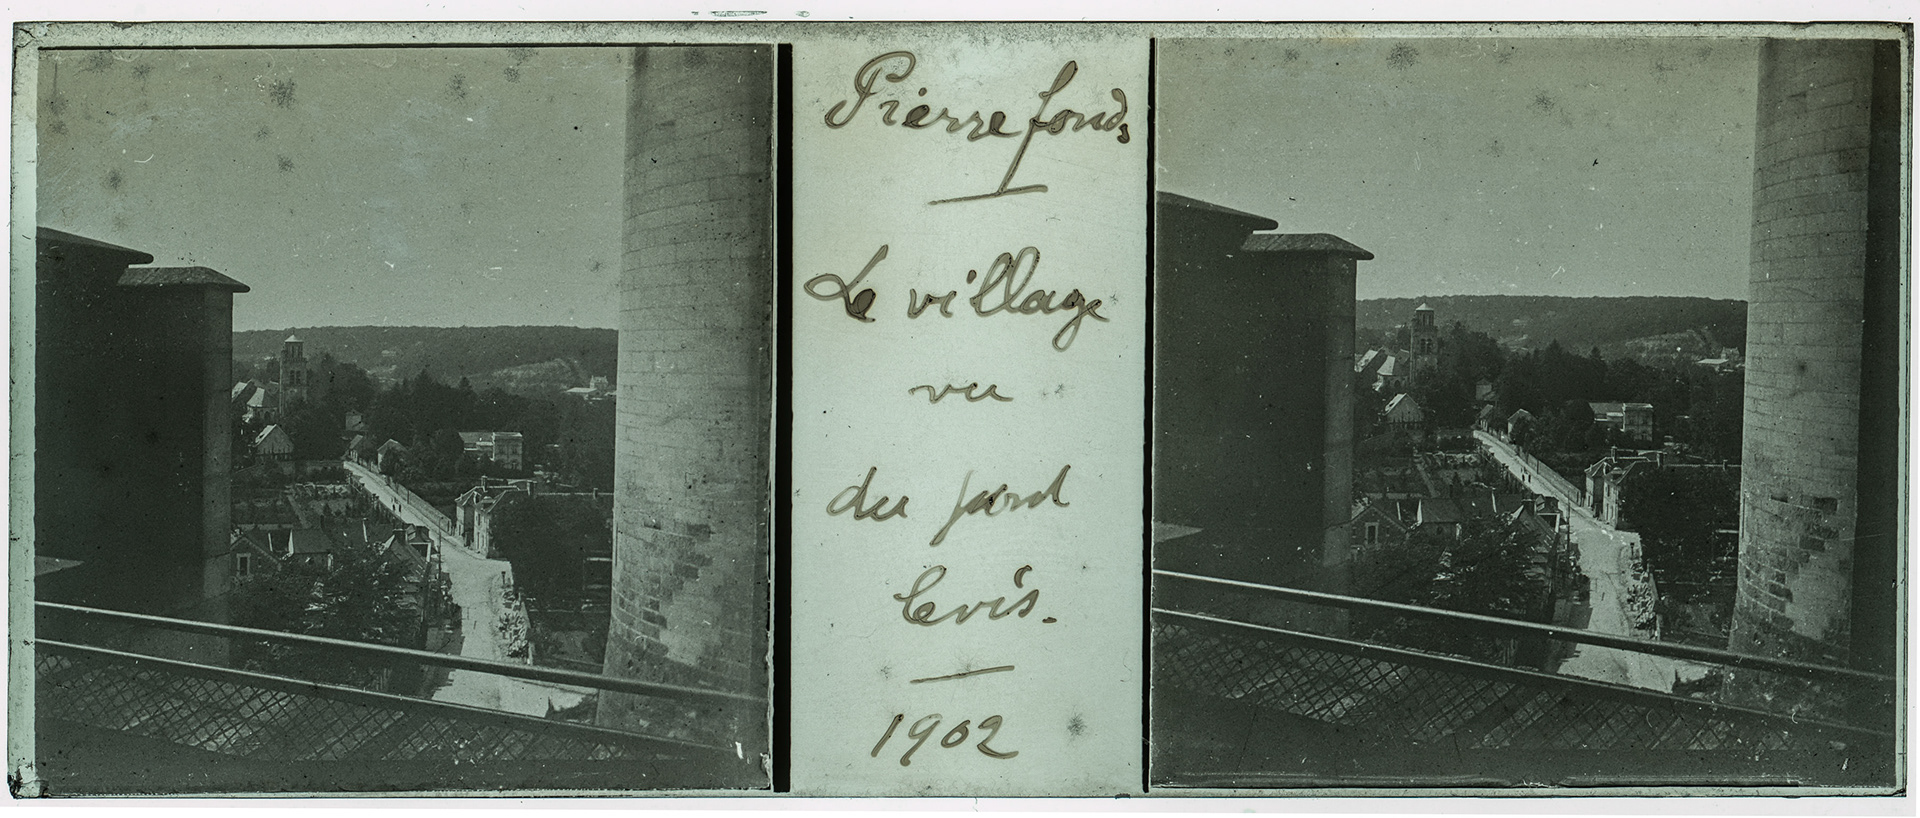 Pierrefonds
Le village
vu
du pont
levis.
1902